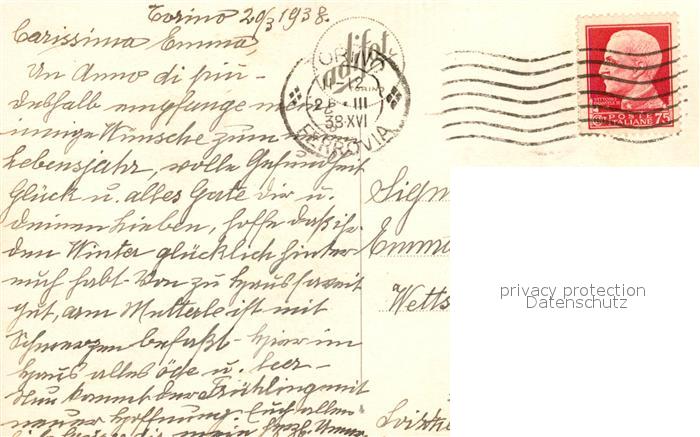 Torino 20/3 1938.
Carissima Emma,
Un Anno di più -
deshalb empfange meine
innige Wünsche zum n
Lebensjahr, volle Gesundheit
Glück u. alles Gute dir u.
deinen Lieben, hoffe daß ihr
den Winter glücklich hinter
euch habt. Von zu Haus soweit
gut, arm Mutterle ist mit
Schmerzen befaßt - hier im
Haus alles öde u. leer -
Nun kommt der Frühling mit
neuer Hoffnung. Euch allen
adifot
TORINO
TORINO
12
III
38·XVI
FERROVIA
POSTE
ITALIANE
75
Sign
Emma
Wetts
privacy protection
Datenschutz